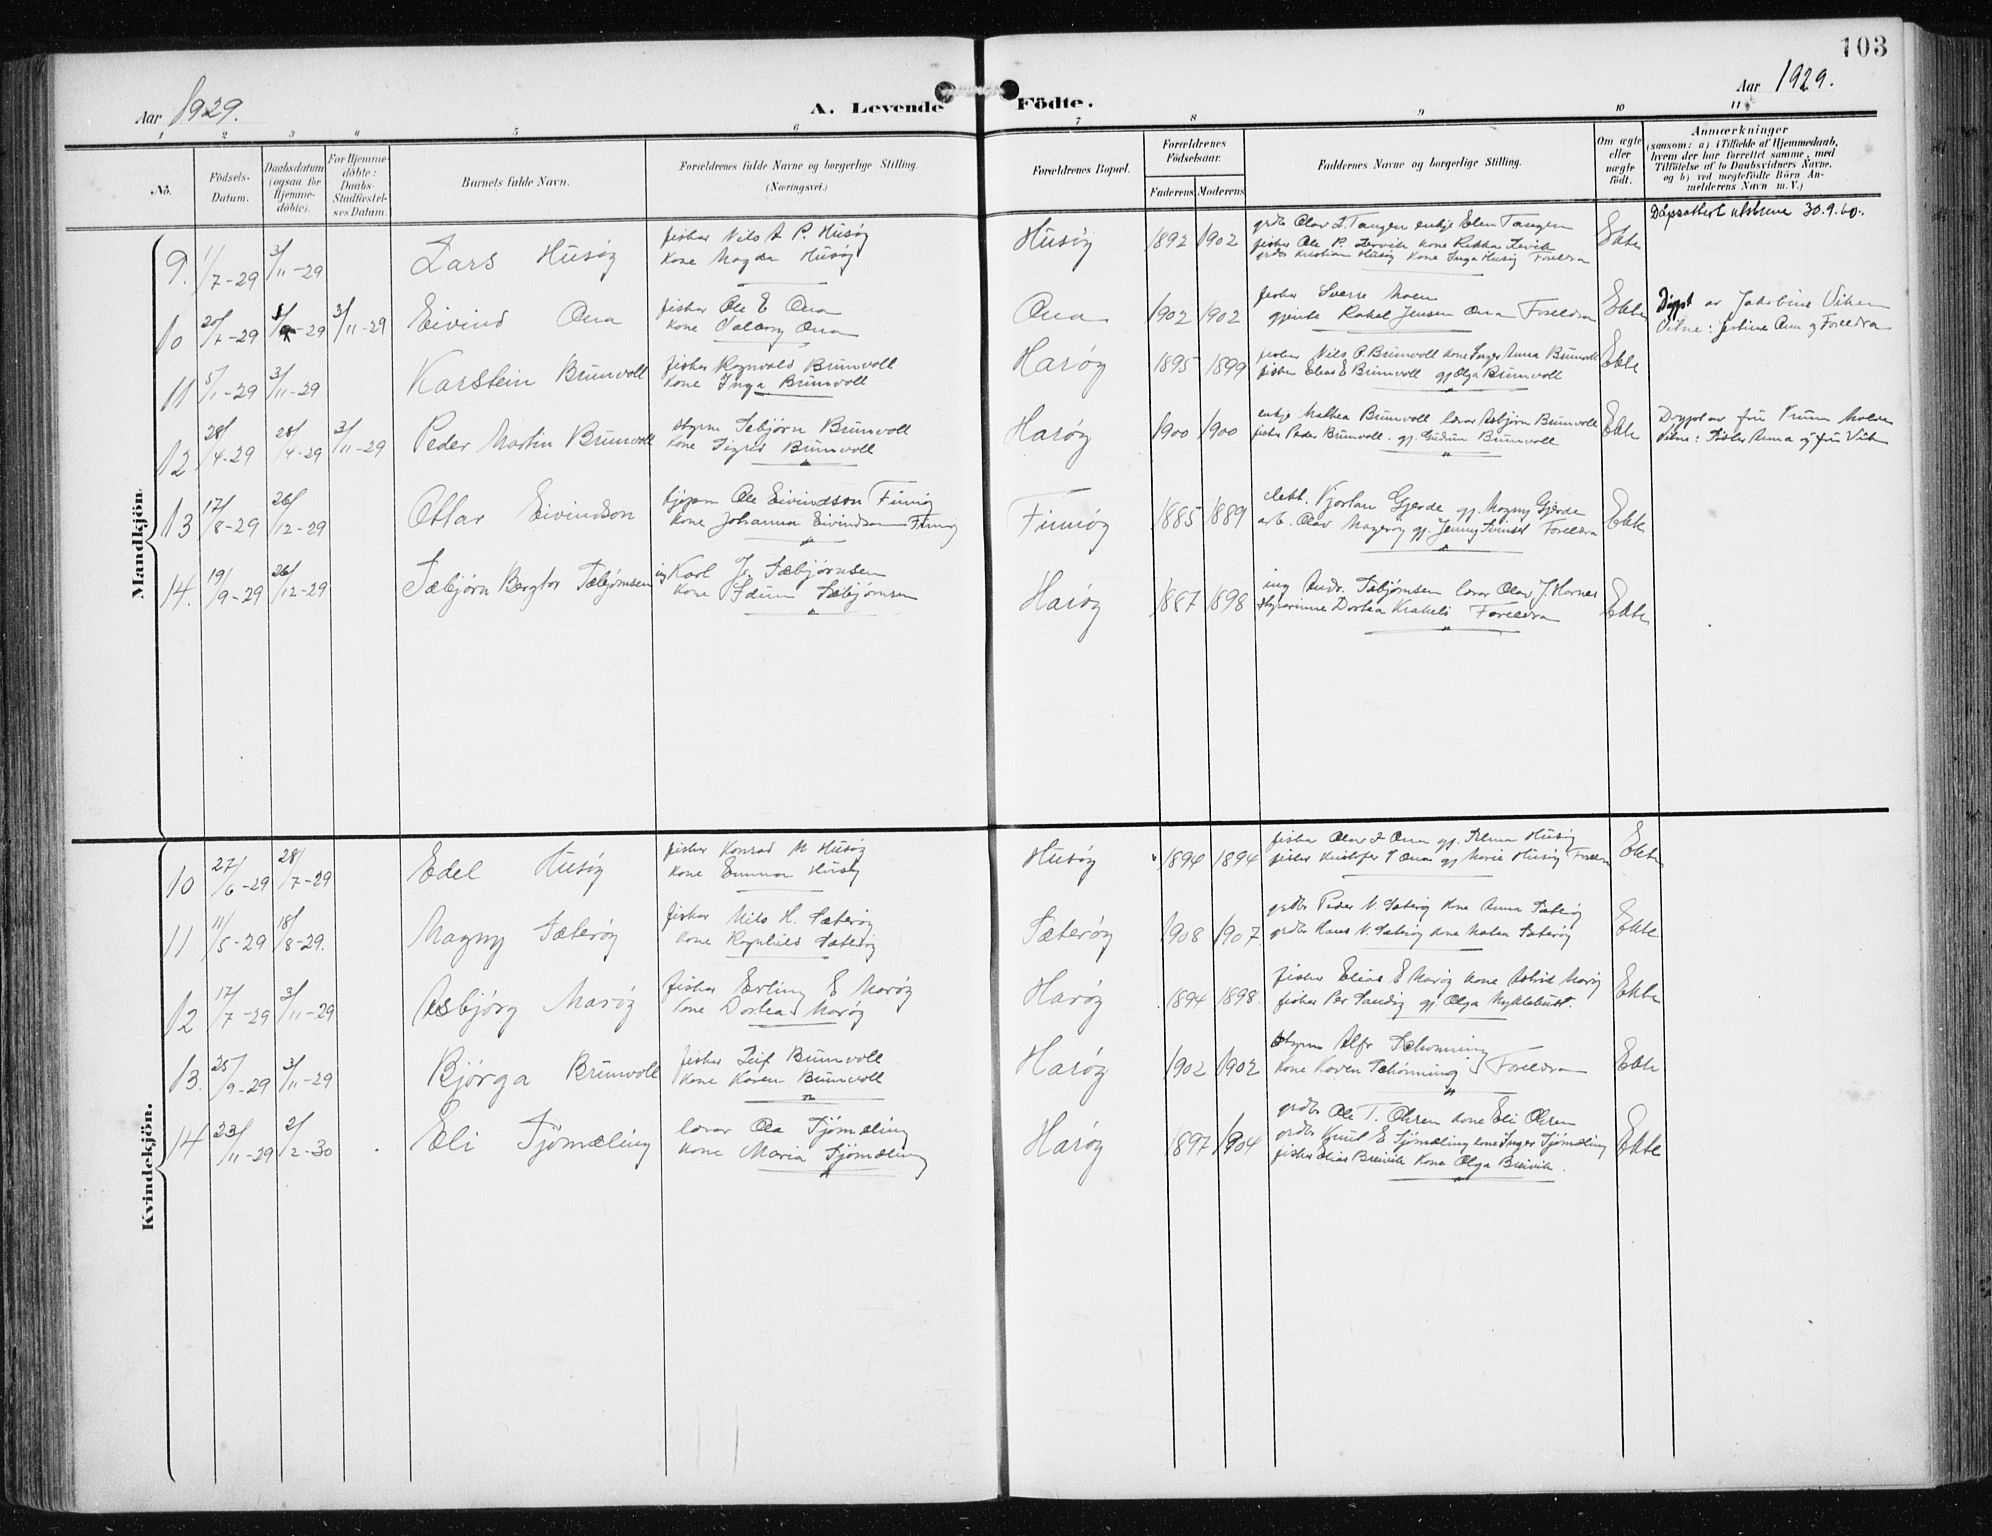 103
Aar 1929.
A. Levende Födte.
Aar 1929.
1 2 3 4 5 6 7 8 9 10 11
No.
Födsels-Datum.
Daabsdatum (ogsaa for Hjemme-döbte).
For Hjemme-döbte: Daabs-Stadfæstel-ses Datum.
Barnets fulde Navn.
Forældrenes fulde Navne og borgerlige Stilling.
(Næringsvei.)
Forældrenes Bopæl.
Forældrenes Födselsaar.
Faderens Moderens
Faddernes Navne og borgerlige Stilling.
Om ægte eller uægte födt.
Anmærkninger
(saasom: a) i Tilfælde af Hjemmedaab,
hvem der har forrettet samme, med
Tilföielse af to Daabsvidners Navne.
og b) ved uegtefödte Börn An-
melderens Navn m. V.)
Mandkjön.
9. 1/7-29 3/11-29 Lars Husøy
fisker Nils A P. Husøy
kone Magda Husøy
Husøy 1892 1902
grdbr Olav L. Tangen enkje Elen Tangen
fisker Ole P. Lervik kone Rikka Lervik
grdbr Kristian Husøy kone Inga Husøy Foreldra
Ekte
Dåpsattest utskreve 30.9.60.
10 20/7-29 8/9-29 3/11-29 Eivind Ona
fisker Ole E Ona
kone Valborg Ona
Ona 1902 1902
fisker Sverre Moen
gjente Rakel Jensen Ona Foreldra
Ekte
Døypt av Jakobine Viken
Vitne: Justine Ona og Foreldra
11 5/1-29 3/11-29 Karstein Brunvoll
fisker Rognvald Brunvoll
kone Inga Brunvoll
Harøy 1895 1899
fisker Nils P. Brunvoll kone Inger Anna Brunvoll
fisker Elias E Brunvoll gj Olga Brunvoll
Ekte
12 28/4-29 28/4-29 3/11-29 Peder Martin Brunvoll
styrm Sæbjørn Brunvoll
kone Sigrid Brunvoll
Harøy 1900 1900
enkje Mathea Brunvoll lærar Asbjørn Brunvoll
fisker Peder Brunvoll. gj. Gudrun Brunvoll
Ekte
Døypt av fru Molde
Vitne: Søster Anna og fru
13 17/8-29 26/12-29 Ottar Eivindson
kjøpm Ole Eivindson Finnøy
kone Johanna Eivindson Finnøy
Finnøy 1885 1889
Kjartan Gjerde gj. Magny Gjerde
arb. Olav Magerøy gj. Jenny Foreldra
Ekte
14. 19/9-29 26/12-29 Sæbjørn Bergtor Sæbjørnsen
ing Karl J. Sæbjørnsen
kone Idun Sæbjørnsen
Harøy 1887 1898
ing Andr. Sæbjørnsen lærar Olav J. Harnes
styrarinne Dortea Krakeli Foreldra
Ekte
Kvindekjön.
10 27/6-29 28/7-29 Edel Husøy
fisker Konrad M Husøy
kone Emma Husøy
Husøy 1894 1894
fisker Olav L Ona gj. Alma Husøy
fisker Kristofer T Ona gj Marie Husøy Foreldra
Ekte
11 11/5-29 18/8-29. Magny Sæterøy
fisker Nils H. Sæterøy
kone Ragnhild Sæterøy
Sæterøy 1908 1907
grdbr Peder N. Sæterøy kone Anna Sæterøy
grdbr Hans N. Sæterøy kone Malea Sæterøy
Ekte
12 17/7-29 3/11-29 Asbjørg Marøy
fisker Erling E Marøy
kone Dortea Marøy
Harøy 1894 1898
fisker Elias E Marøy kone Astrid Marøy
fisker Per Sandøy gj. Olga Myklebust.
Ekte
13. 25/9-29 3/11-29 Bjørga Brunvoll
fisker Leif Brunvoll
kone Karen Brunvoll
Harøy 1902 1902
styrm Alfr Schønning
kone Karen Schønning Foreldra
Ekte
14 23/11-29 2/2-30 Eli Sjömæling
lærar Ola Sjömæling
kone Maria Sjömæling
Harøy 1897 1904
grdbr Ole T. Olsen kone Eli Olsen
grdbr Knut E Sjömæling kone Inger Sjömæling
fisker Elias Breivik kone Olga Breivik.
Ekte